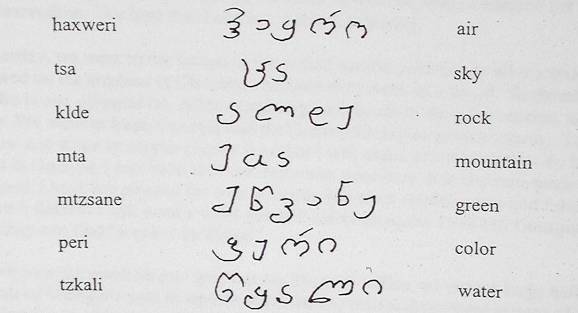 haxweri ჰაერი air
tsa ცა sky
klde კლდე rock
mta მთა mountain
mtzsane მწვანე green
peri ფერი color
tzkali წყალი water